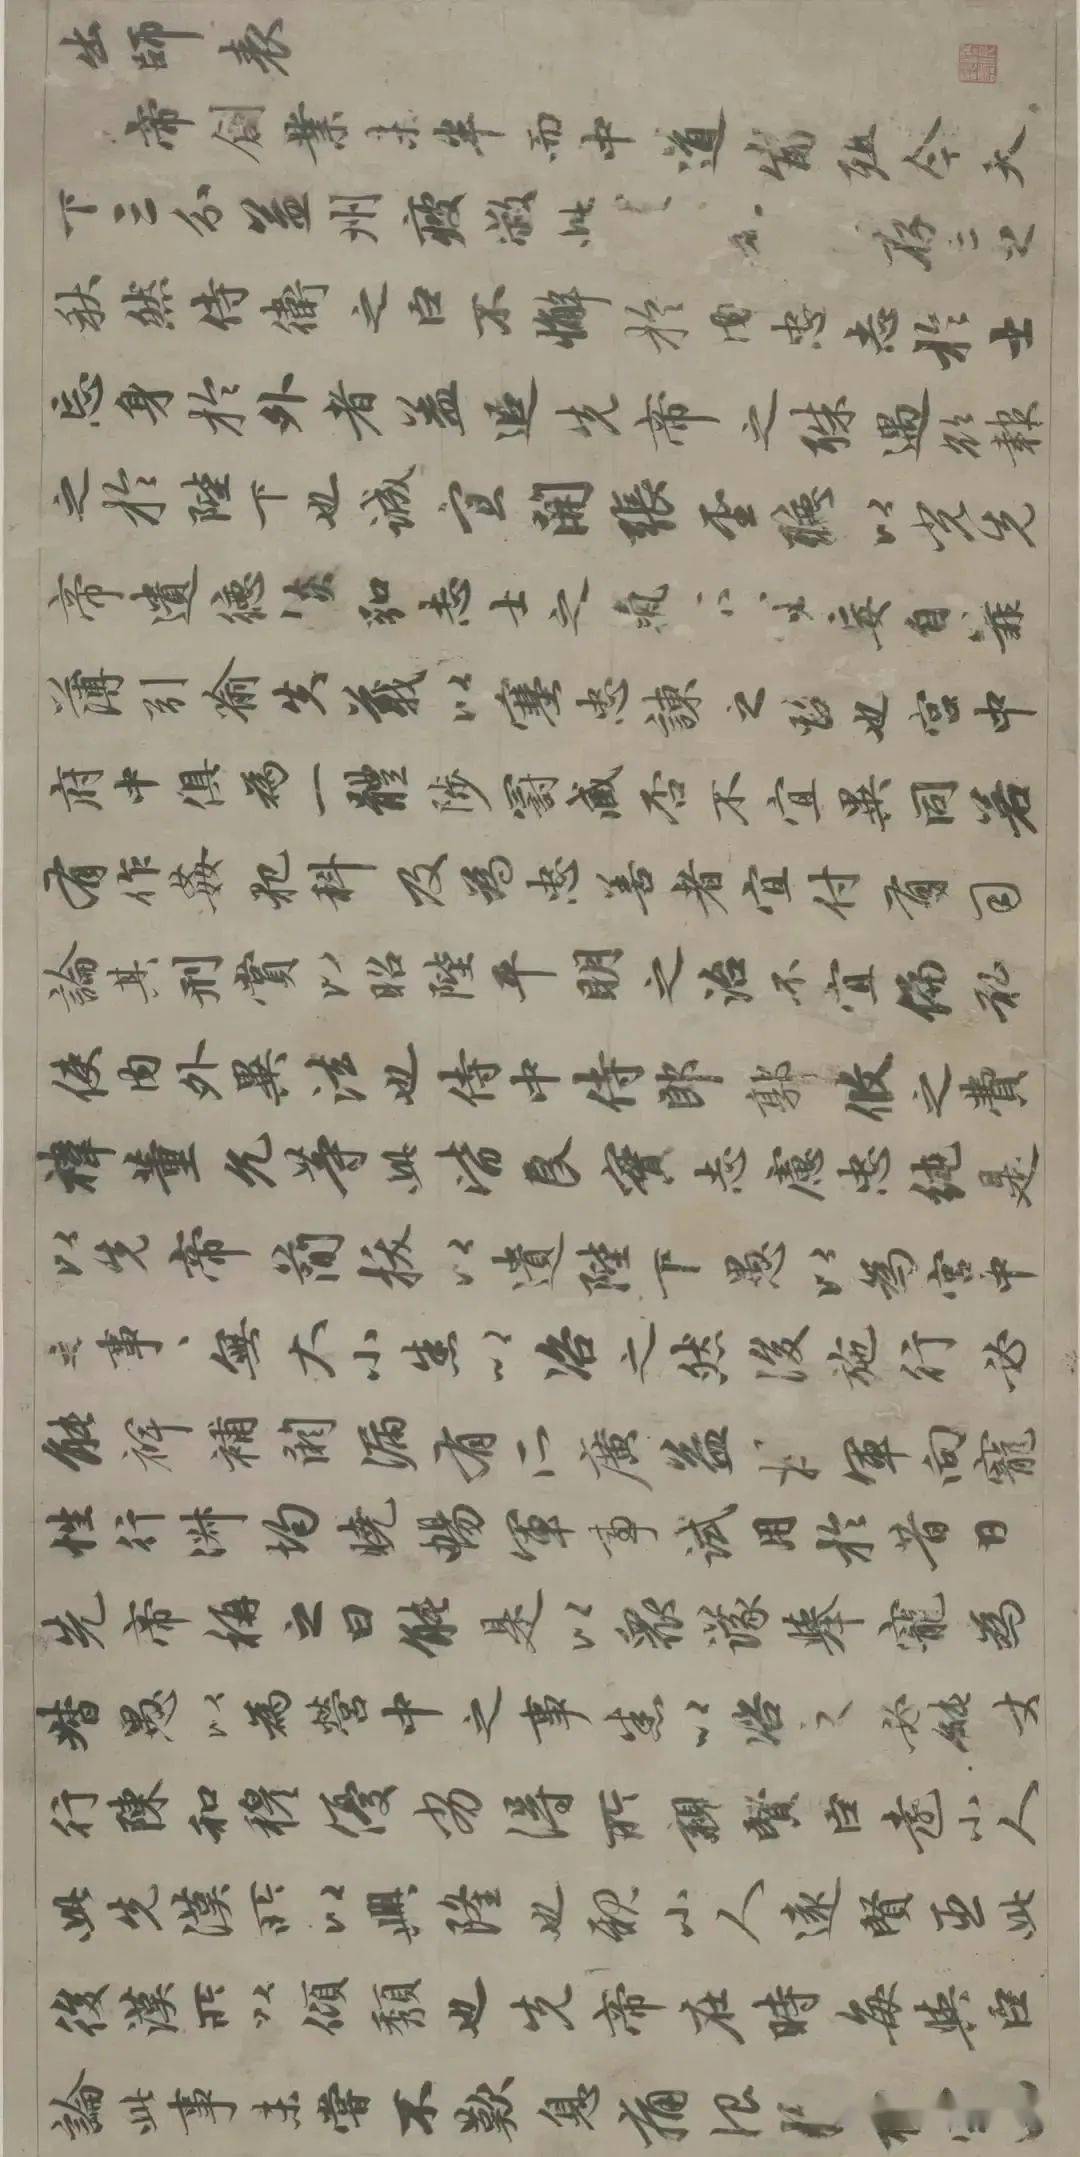 出師表
帝創業未半而中道崩殂今天
下三分益州疲敝此存亡之
秋然侍衛之臣不懈於內忠志於士
忘身於外者益追先帝之殊遇欲報
之於陛下也誠宜開張聖聽以光先
帝遺德恢弘志士之氣不宜妄自菲
薄引喻失義以塞忠諫之路也宮中
府中俱為一體陟罰臧否不宜異同若
有作姦犯科及為忠善者宜付有司
論其刑賞以昭陛平明之治不宜偏私
使內外異法也侍中侍郎郭攸之費
禕董允等此皆良實志慮忠純是
以先帝簡拔以遺陛下愚以為宮中
之事、無大小悉以咨之然後施行必
能裨補闕漏有所廣益將軍向寵
性行淑均曉暢軍事試用於昔日
先帝稱之曰能是以眾議舉寵為
督愚以為營中之事悉以咨之必能
行陳和穆優劣得所親賢臣遠小人
此先漢所以興隆也親小人遠賢臣此
後漢所以傾頹也先帝在時每與臣
論此事未嘗不歎息痛恨